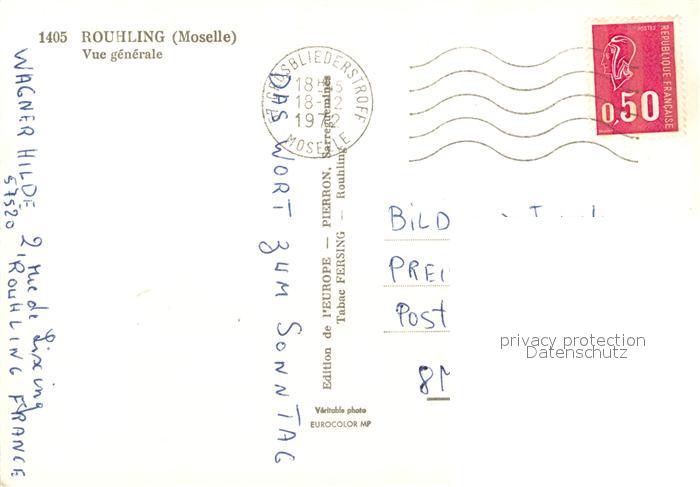 1405 ROUHLING (Moselle)
Vue générale
GROSBLIEDERSTROFF
18-12
1972
MOSELLE
POSTES
REPUBLIQUE FRANÇAISE
0,50
WAGNER HILDE 2 rue de Sixing
57520 ROUHLING FRANCE
DAS WORT ZUM SONNTAG
Edition de l'EUROPE — PIERRON, Sarreguemines
Tabac FERSING — Rouhling
BILD
PREI
Post
privacy protection
Datenschutz
Véritable photo
EUROCOLOR MP